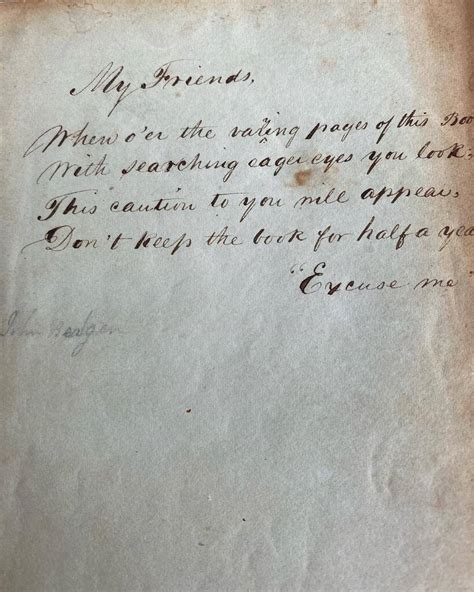 My Friends,
When o'er the vating pages of this Boo
With searching eager eyes you look:
This caution to you will appear,
Don't keep the book for half a yea
"Excuse me
John Bergen